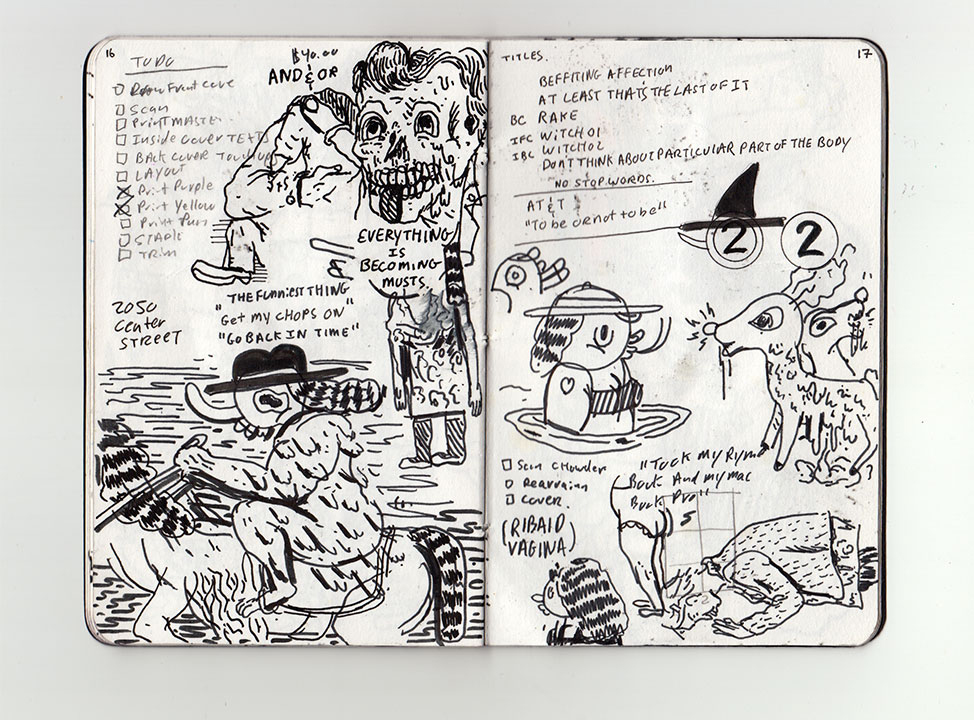 16
TO DO
Draw Front Cove
Scan
Print MASTE
Inside cover TEXT
BACK COVER TOUCHUP
LAYOUT
Print Purple
Print Yellow
Print
STAPLE
TRIM
$40.00
AND & OR
EVERYTHING
IS
BECOMING
MUSTS.
"THE FUNNIEST THING
"Get my CHOPS ON"
"GO BACK IN TIME"
2050
Center
STREET
17
TITLES.
BEFFITING AFFECTION
AT LEAST THAT'S THE LAST OF IT
BC RAKE
IFC WITCH 01
IBC WITCH 02
DON'T THINK ABOUT PARTICULAR PART OF THE BODY
NO STOP WORDS.
AT&T
"To be or not to be"
2 2
Scan CHOWDER
COVER.
"Took my
Back And my mac
Book Pro"
5
(RIBALD
VAGINA)